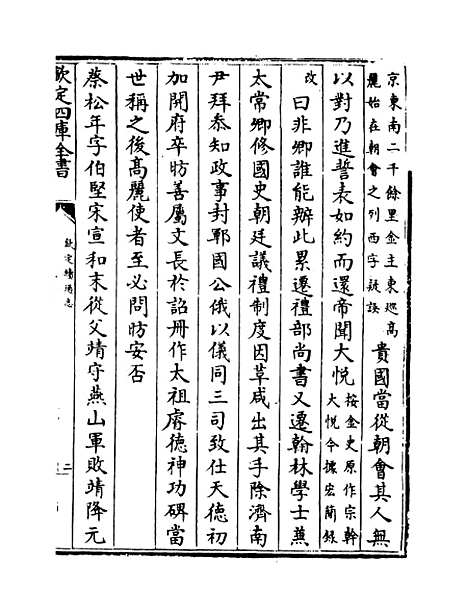 京東南二千餘里金主東廵高
麗始在朝會之列西字疑誤
貴國當從朝會其人無
以對乃進誓表如約而還帝聞大悅
按金史原作宗幹
大悅今據宏簡錄
改
曰非卿誰能辦此累遷禮部尚書又遷翰林學士兼
太常卿修國史朝廷議禮制度因草咸出其手除濟南
尹拜叅知政事封鄆國公俄以儀同三司致仕天德初
加開府卒昉善屬文長於詔冊作太祖睿德神功碑當
世稱之後高麗使者至必問昉安否
蔡松年字伯堅宋宣和末從父靖守燕山軍敗靖降元
欽定四庫全書
欽定續通志
二